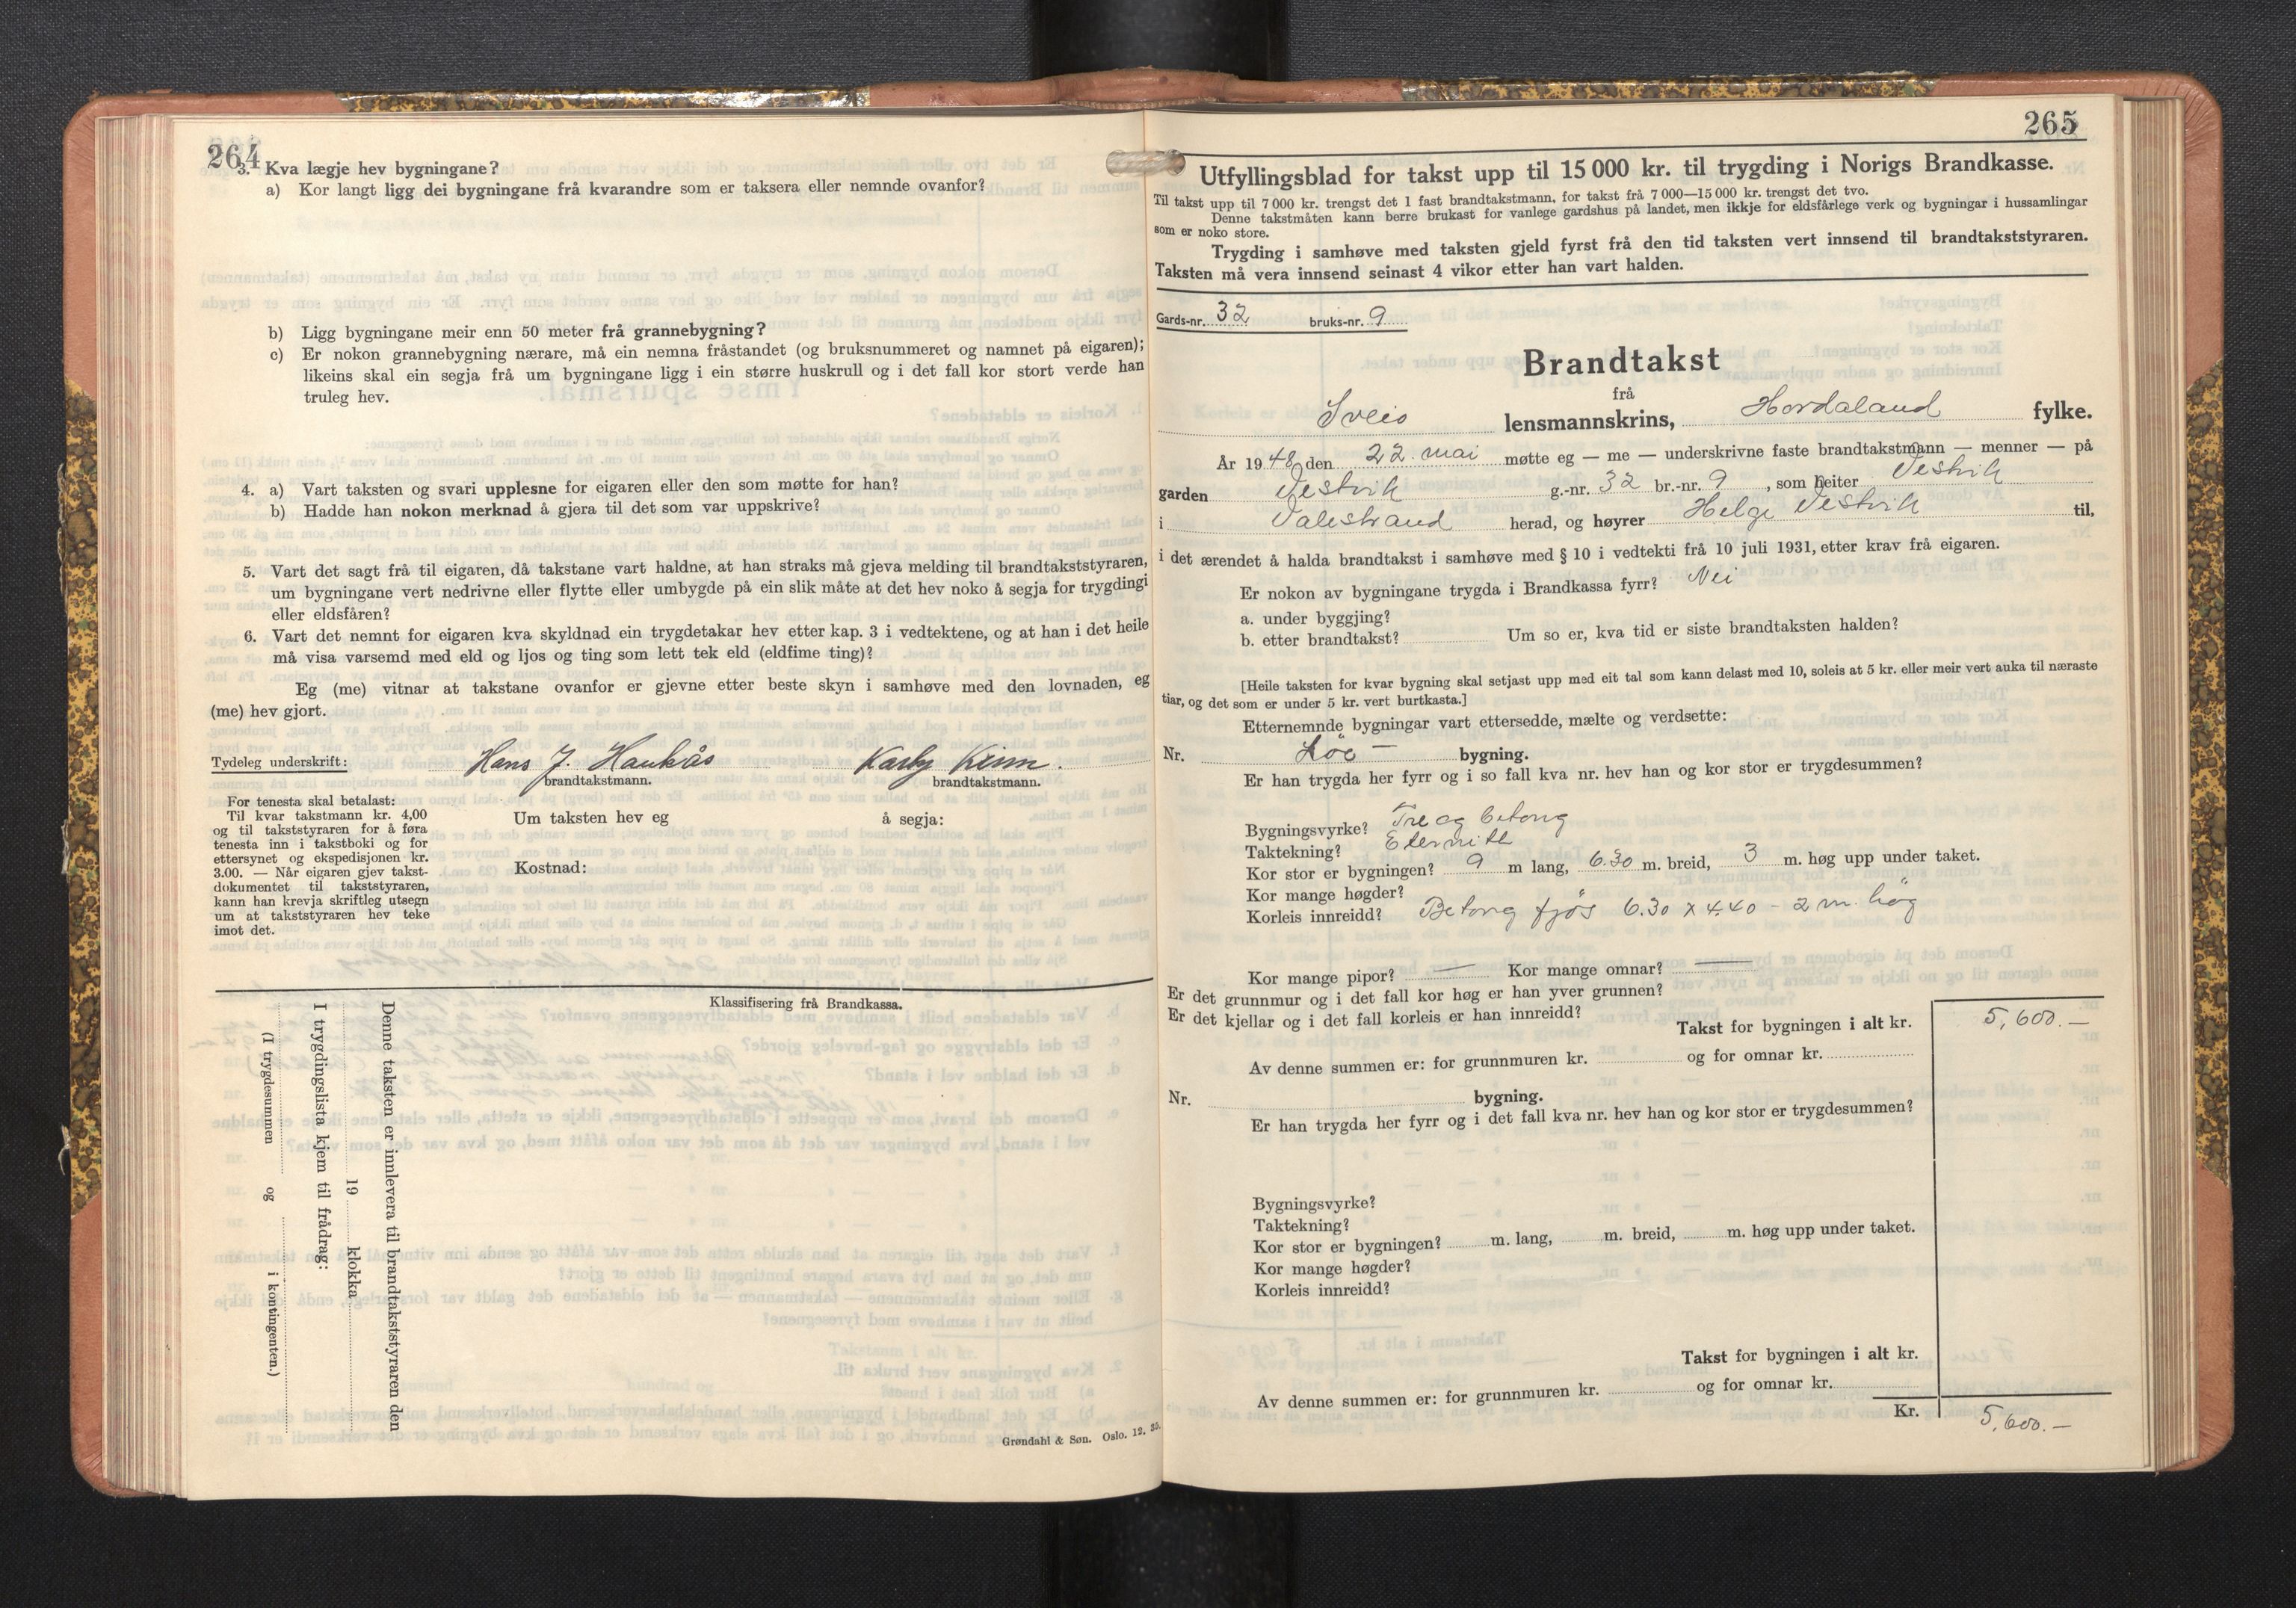 264
3. Kva lægje hev bygningane?
a) Kor langt ligg dei bygningane frå kvarandre som er taksera eller nemnde ovanfor?
b) Ligg bygningane meir enn 50 meter frå grannebygning?
c) Er nokon grannebygning nærare, må ein nemna fråstandet (og bruksnummeret og namnet på eigaren);
likeins skal ein segja frå um bygningane ligg i ein større huskrull og i det fall kor stort verde han
truleg hev.
4. a) Vart taksten og svari upplesne for eigaren eller den som møtte for han?
b) Hadde han nokon merknad å gjera til det som var uppskrive?
5. Vart det sagt frå til eigaren, då takstane vart haldne, at han straks må gjeva melding til brandtakststyraren,
um bygningane vert nedrivne eller flytte eller umbygde på ein slik måte at det hev noko å segja for trygdingi
eller eldsfåren?
6. Vart det nemnt for eigaren kva skyldnad ein trygdetakar hev etter kap. 3 i vedtektene, og at han i det heile
må visa varsemd med eld og ljos og ting som lett tek eld (eldfime ting)?
Eg (me) vitnar at takstane ovanfor er gjevne etter beste skyn i samhøve med den lovnaden, eg
(me) hev gjort.
Tydeleg underskrift: Hans J. Haukås Karly
brandtakstmann. brandtakstmann.
For tenesta skal betalast:
Til kvar takstmann kr. 4,00
og til takststyraren for å føra
tenesta inn i takstboki og for
ettersynet og ekspedisjonen kr.
3.00. — Når eigaren gjev takst-
dokumentet til takststyraren,
kann han krevja skriftleg utsegn
um at takststyraren hev teke
imot det.
Um taksten hev eg å segja:
Kostnad:
Klassifisering frå Brandkassa.
Denne taksten er innlevera til brandtakststyraren den
19 klokka
I trygdingslista kjem til frådrag:
(I trygdesummen og i kontingenten.)
Grøndahl & Søn. Oslo. 12. 35.
265
Utfyllingsblad for takst upp til 15 000 kr. til trygding i Norigs Brandkasse.
Til takst upp til 7 000 kr. trengst det 1 fast brandtakstmann, for takst frå 7 000—15 000 kr. trengst det tvo.
Denne takstmåten kann berre brukast for vanlege gardshus på landet, men ikkje for eldsfårlege verk og bygningar i hussamlingar
som er noko store.
Trygding i samhøve med taksten gjeld fyrst frå den tid taksten vert innsend til brandtakststyraren.
Taksten må vera innsend seinast 4 vikor etter han vart halden.
Gards-nr. 32 bruks-nr. 9
Brandtakst
frå
Sveio lensmannskrins, Hordaland fylke.
År 1948 den 22 mai møtte eg — me — underskrivne faste brandtakstmann — menner — på
garden Vestvik g.-nr. 32 br.-nr. 9, som heiter Vestvik
i Valestrand herad, og høyrer Helge Vestvik til,
i det ærendet å halda brandtakst i samhøve med § 10 i vedtekti frå 10 juli 1931, etter krav frå eigaren.
Er nokon av bygningane trygda i Brandkassa fyrr? Nei
a. under byggjing?
b. etter brandtakst? Um so er, kva tid er siste brandtaksten halden?
[Heile taksten for kvar bygning skal setjast upp med eit tal som kann delast med 10, soleis at 5 kr. eller meir vert auka til næraste
tiar, og det som er under 5 kr. vert burtkasta.]
Etternemnde bygningar vart ettersedde, mælte og verdsette:
Nr. Löe — bygning.
Er han trygda her fyrr og i so fall kva nr. hev han og kor stor er trygdesummen?
Bygningsvyrke? Tre og betong
Taktekning? Eternitt
Kor stor er bygningen? 9 m lang, 6.30 m. breid, 3 m. høg upp under taket.
Kor mange høgder?
Korleis innreidd? Betong fjös 6.30 x 4.40 - 2 m. hög
Kor mange pipor? — Kor mange omnar? —
Er det grunnmur og i det fall kor høg er han yver grunnen?
Er det kjellar og i det fall korleis er han innreidd?
Takst for bygningen i alt kr. 5,600.—
Av denne summen er: for grunnmuren kr. og for omnar kr.
Nr. bygning.
Er han trygda her fyrr og i det fall kva nr. hev han og kor stor er trygdesummen?
Bygningsvyrke?
Taktekning?
Kor stor er bygningen? m. lang, m. breid, m. høg upp under taket.
Kor mange høgder?
Korleis innreidd?
Takst for bygningen i alt kr.
Av denne summen er: for grunnmuren kr. og for omnar kr.
Kr. 5,600.—